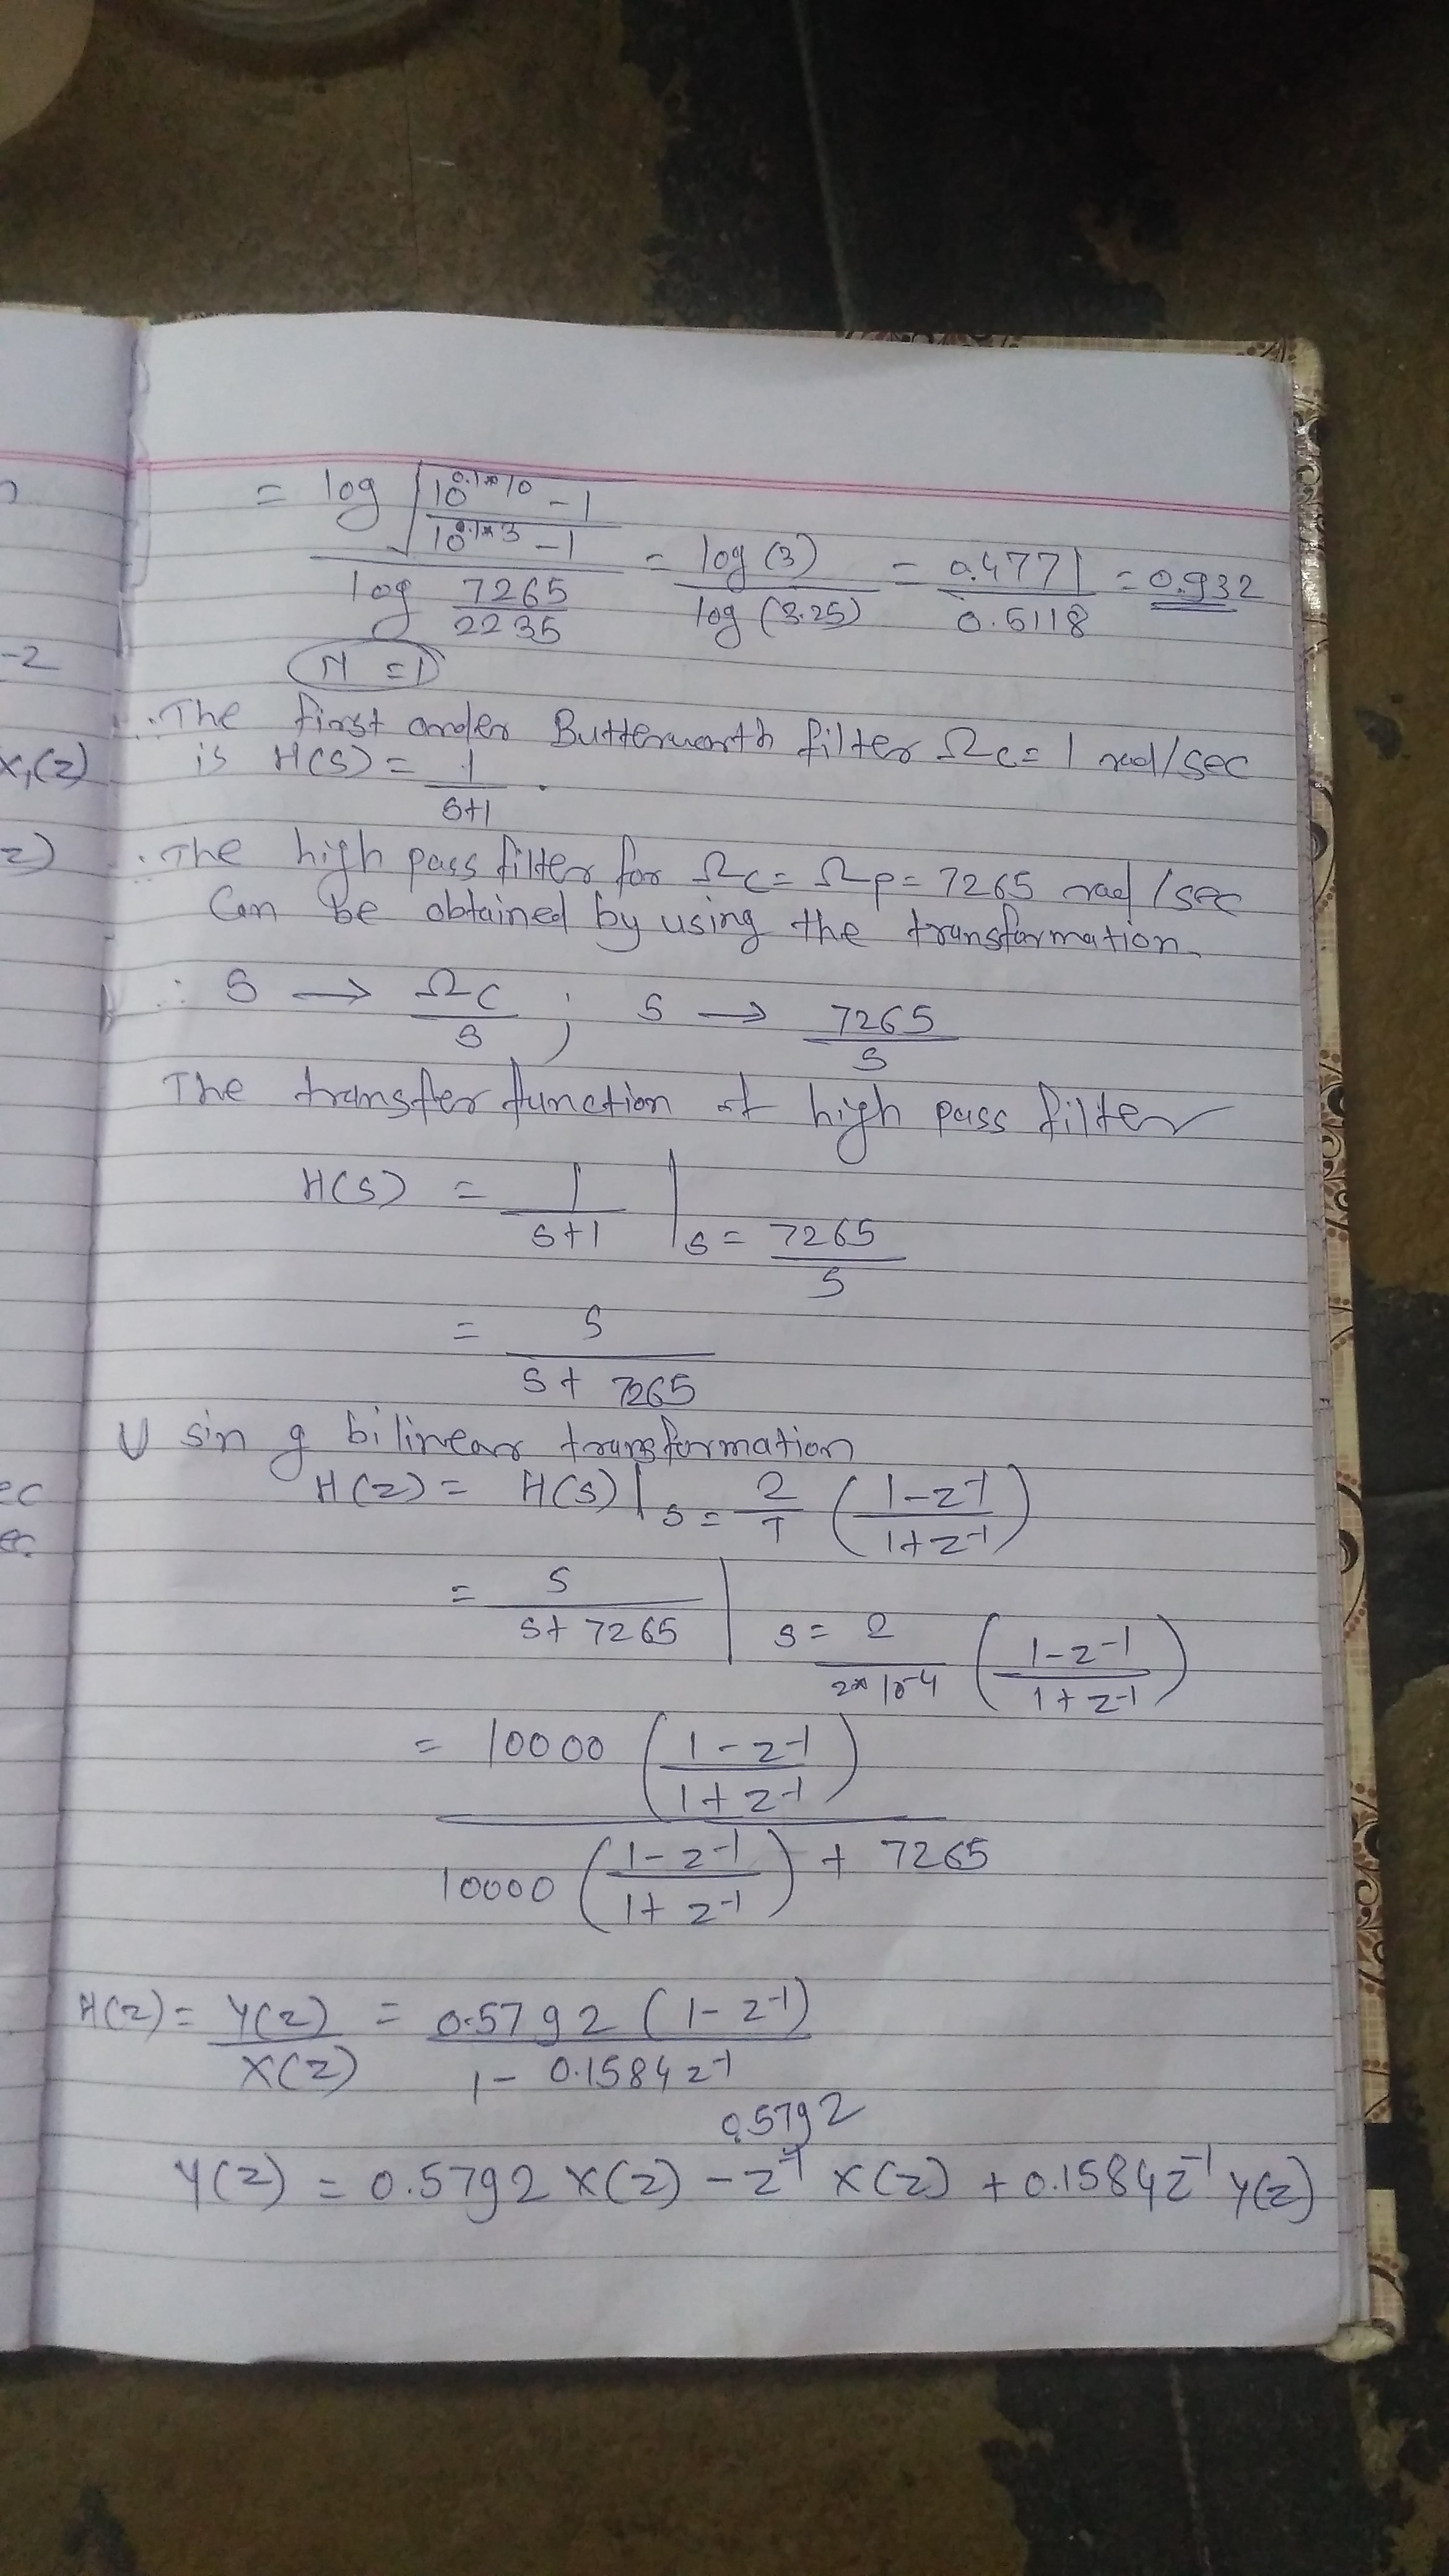 = log √(10^0.1*10 - 1 / 10^0.1*3 - 1) / log 7265/2235 = log(3) / log(3.25) = 0.4771 / 0.5118 = 0.932
N = 1
∴ The first order Butterworth filter Ωc = 1 rad/sec
is H(s) = 1/(s+1).
∴ The high pass filter for Ωc = Ωp = 7265 rad/sec
Can be obtained by using the transformation.
∴ s → Ωc/s ; s → 7265/s
The transfer function of high pass filter
H(s) = 1/(s+1) | s = 7265/s
= s/(s + 7265)
Using bilinear transformation
H(z) = H(s) | s = 2/T ((1-z^-1)/(1+z^-1))
= s/(s+7265) | s = 2/(2*10^-4) ((1-z^-1)/(1+z^-1))
= 10000 ((1-z^-1)/(1+z^-1))
/ 10000 ((1-z^-1)/(1+z^-1)) + 7265
H(z) = Y(z)/X(z) = 0.5792 (1-z^-1) / 1 - 0.1584 z^-1
0.5792
Y(z) = 0.5792 X(z) - z^-1 X(z) + 0.1584 z^-1 Y(z)
-2
x,(z)
z)
ec
ec